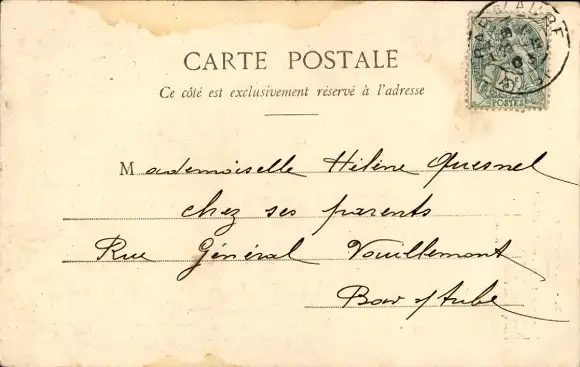 CARTE POSTALE
Ce côté est exclusivement réservé à l'adresse
Mademoiselle Hélène Quesnel
chez ses parents
Rue Général Vouillemont
Bar s/Aube
POSTES